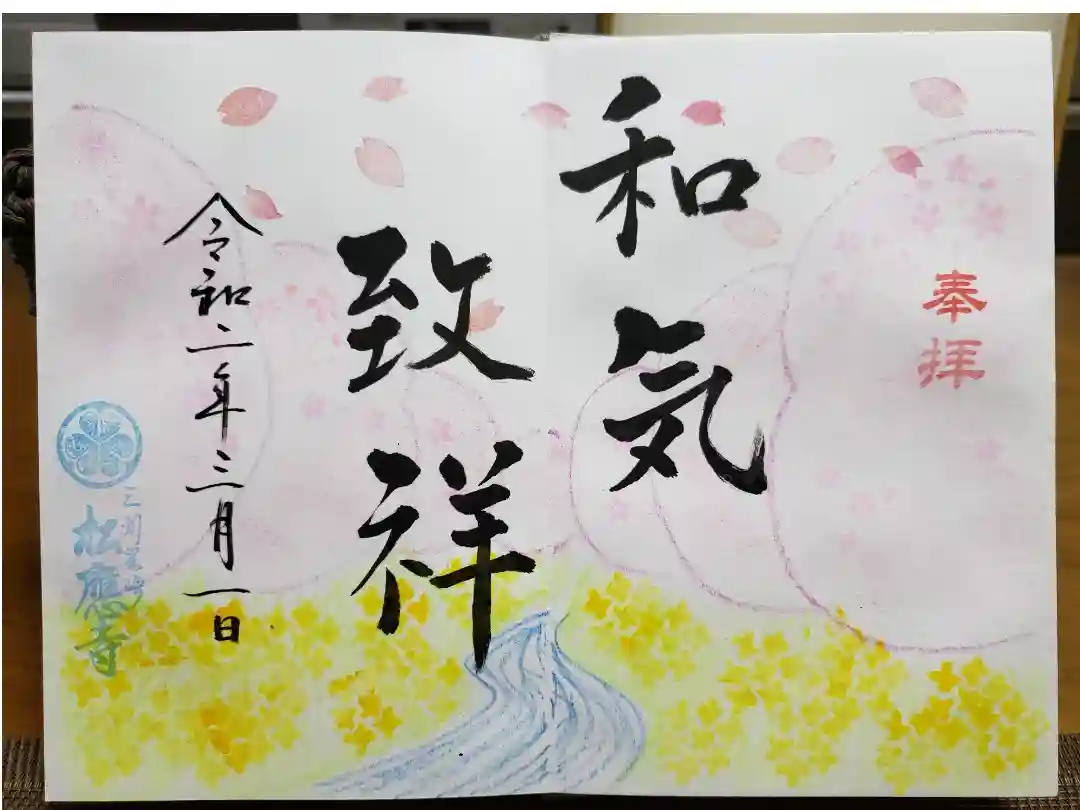 奉拝
和気
致祥
令和二年三月一日
三州岡崎
松應寺